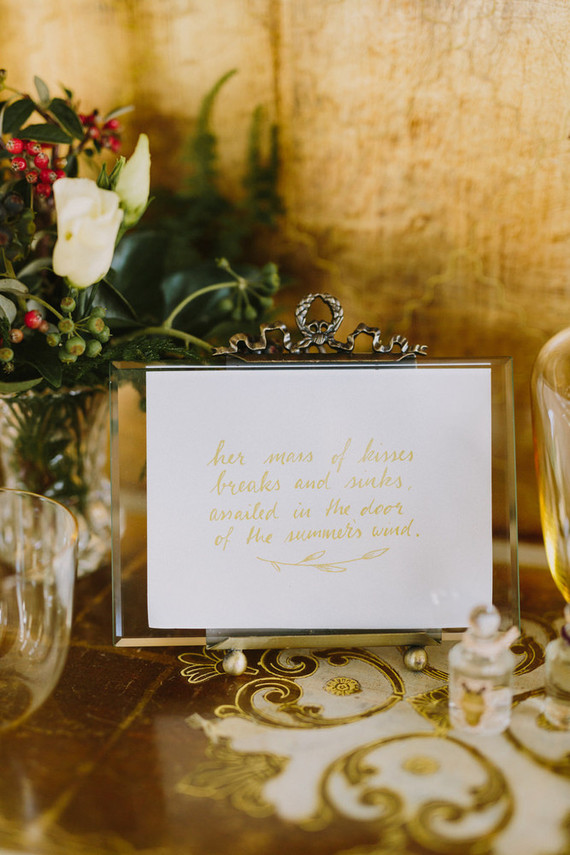 her mass of kisses
breaks and sinks,
assailed in the door
of the summer's wind.